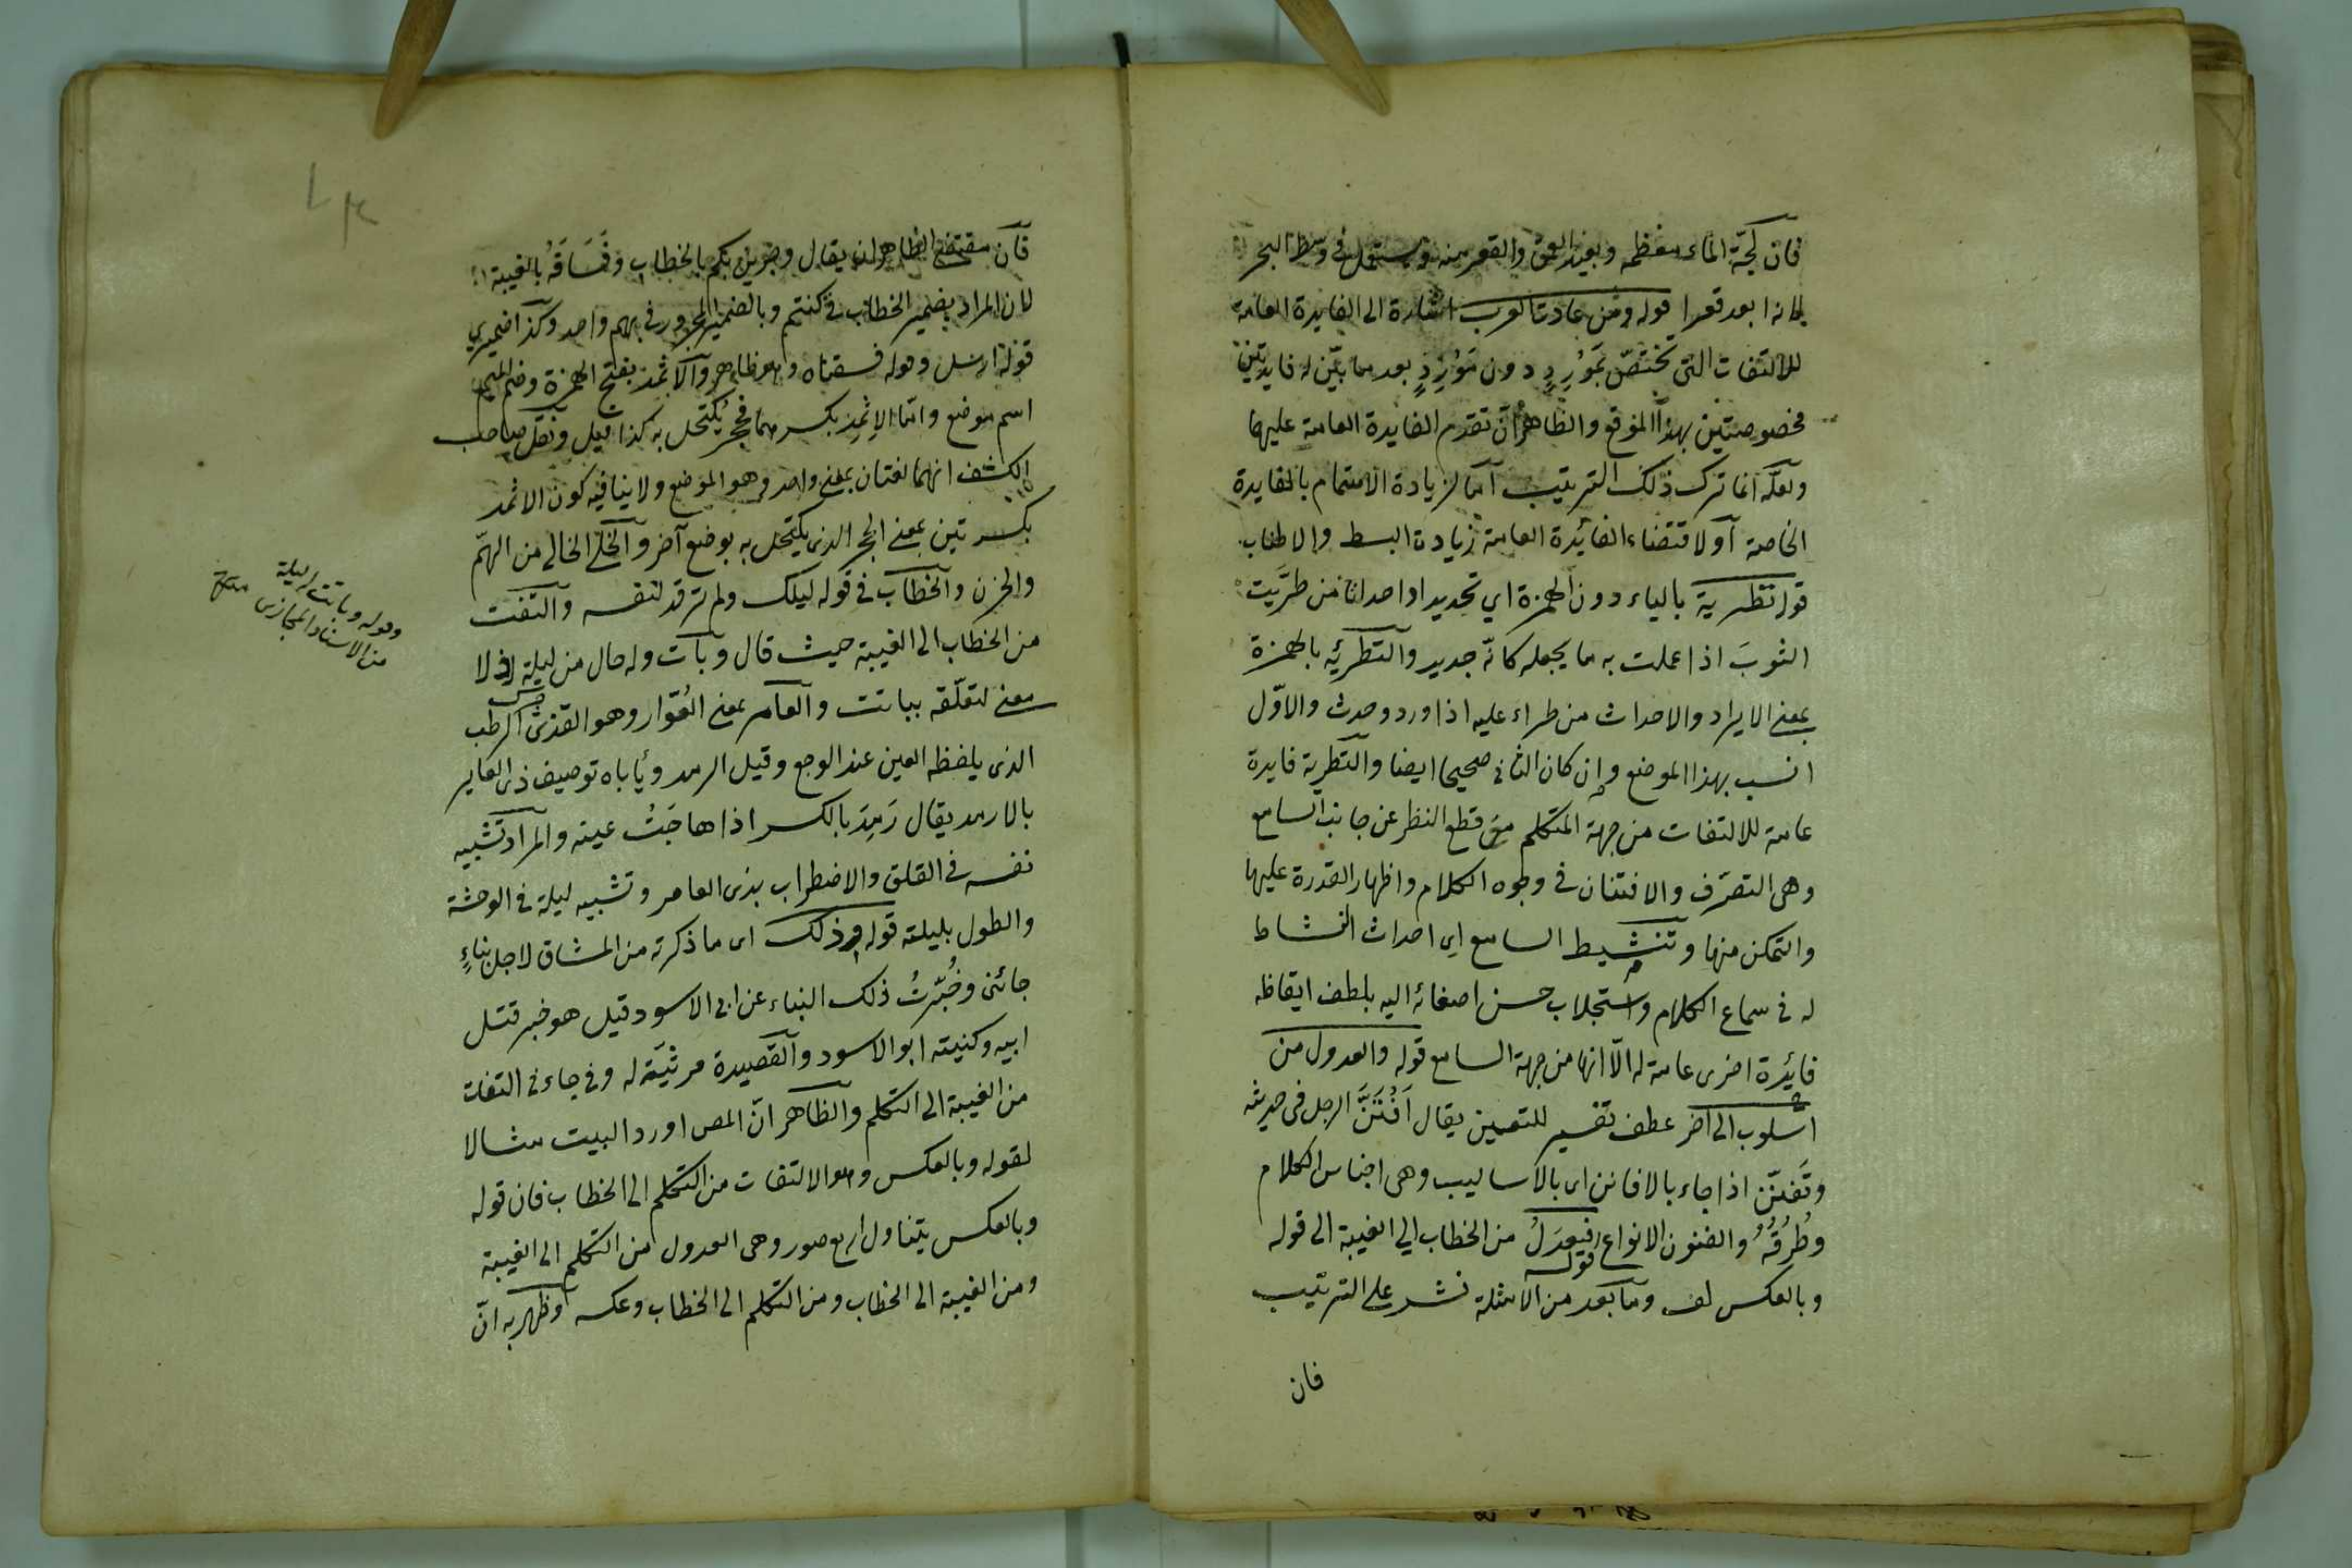 فان لجّة الماء معظمه وبعيد العمق والقعر منه ويستعمل في وسط البحر
لانه ابعد قعرا قوله ومن عادة العرب اشارة الى الفايدة العامة
للالتفات التى تختصّ بمَوْرِدٍ دون مَوْرِدٍ بعد ما بيّن له فايدتين
مخصوصتين بهذا الموقع والظاهر ان تقدم الفايدة العامة عليها
ولعلّه انما ترك ذلك الترتيب اما لزيادة الاهتمام بالفايدة
الخاصة أو لاقتضاء الفائدة العامة زيادة البسط والاطناب
قوله تطرية بالياء دون الهمزة اي تجديدا واحداثا من طرّيت
الثوبَ اذا عملت به ما يجعله كانّه جديد والتطرئه بالهمزة
بمعنى الايراد والاحداث من طراء عليه اذا ورد وحدث والاوّل
انسب بهذا الموضع وإن كان الثانى صحيحا ايضا والتطرية فايدة
عامة للالتفات من جهة المتكلم مع قطع النظر عن جانب السامع
وهى التصرّف والافتنان فى وجوه الكلام واظهار القدرة عليها
والتمكن منها وتنشيط السامع اي احداث النشاط
له فى سماع الكلام واستجلاب حسن اصغائه اليه بلطف ايقاظه
فائدة اخرى عامة له الّا انها من جهة السامع قوله والعدول من
اسلوب الى اخر عطف تفسير للتفنن يقال اَفْتَنَّ الرجل فى حديثه
وتَفنّن اذا جاء بالافانين اى بالاساليب وهى اجناس الكلام
وطُرُقُهُ والفنون الانواع قوله فيعدلُ من الخطاب الي الغيبة الى قوله
وبالعكس لف وما بعد من الامثلة نشر على الترتيب
فان
فانّ مقتضى الظاهر ان يقال وجرين بكم بالخطاب وفَسَاقَهُ بالغيبة
لان المراد بضمير الخطاب فى كنتم وبالضمير المجرور فى بهم واحد وكذا ضميري
قوله ارسل وقوله فسقناه وهو ظاهر والاَثمُد بفتح الهمزة وضم الميم
اسم موضع وامّا الاِثمِد بكسرهما فحجر يُكتحل به كذا قيل ونقل صاحب
الكشف انهما لغتان بمعنى واحد وهو الموضع ولا ينافيه كون الاثمد
بكسرتين بمعنى الحجر الذى يكتحل به بوضع آخر والخلىّ الخالى من الهمّ
والحزن والخطاب فى قوله ليلك ولم ترقد لنفسه والتفت
من الخطاب الى الغيبة حيث قال وبات وله حال من ليلة اذ لا
معنى لتعلّقه بباتت والعائر بمعنى العُوّار وهو القذى الرطب
الذى يلفظه العين عند الوجع وقيل الرمد ويأباه توصيف ذى العاير
بالارمد يقال رَمِدَ بالكسر اذا هاجَتْ عينه والمراد تشبيه
نفسه فى القلق والاضطراب بذى العائر وتشبيه ليلة فى الوحشة
والطول بليلته قوله وذلك اى ما ذكرته من المشاق لاجل نباءٍ
جائنى وخُبّرتُ ذلك النباء عن ابى الاسود قيل هو خبر قتل
ابيه وكنيته ابو الاسود والقصيدة مرثيَته له وفى جاءنى التفات
من الغيبة الى التكلم والظاهر انّ المص اورد البيت مثالا
لقوله وبالعكس وهو الالتفات من التكلم الى الخطاب فان قوله
وبالعكس يتناول اربع صور وهى العدول من التكلم الى الغيبة
ومن الغيبة الى الخطاب ومن التكلم الى الخطاب وعكسه وظهر به انّ
وقوله وباتت له ليلة
من الاسناد المجازى